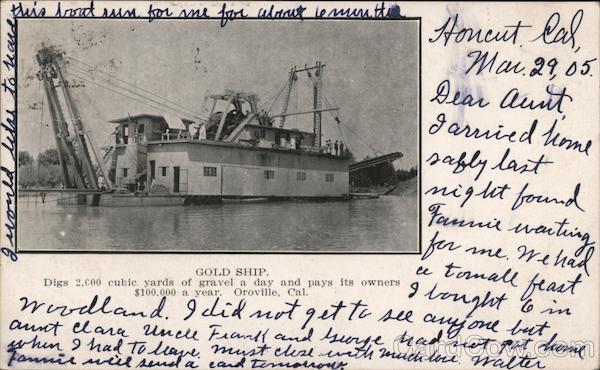 Honcut Cal,
Mar. 29, 05.
Dear Aunt,
I arrived home
safly last
night found
Fannie waiting
for me. We had
a tomall feast
I bought 6 in
Woodland. I did not get to see anyone but
aunt Clara Uncle Frank and George had not got home
when I had to leave. Must close with much love. Walter
Fannie will send a card tomorrow.
I would like to have
this boat run for me for about 6 months
GOLD SHIP.
Digs 2,000 cubic yards of gravel a day and pays its owners
$100,000 a year. Oroville, Cal.
CardCow.com